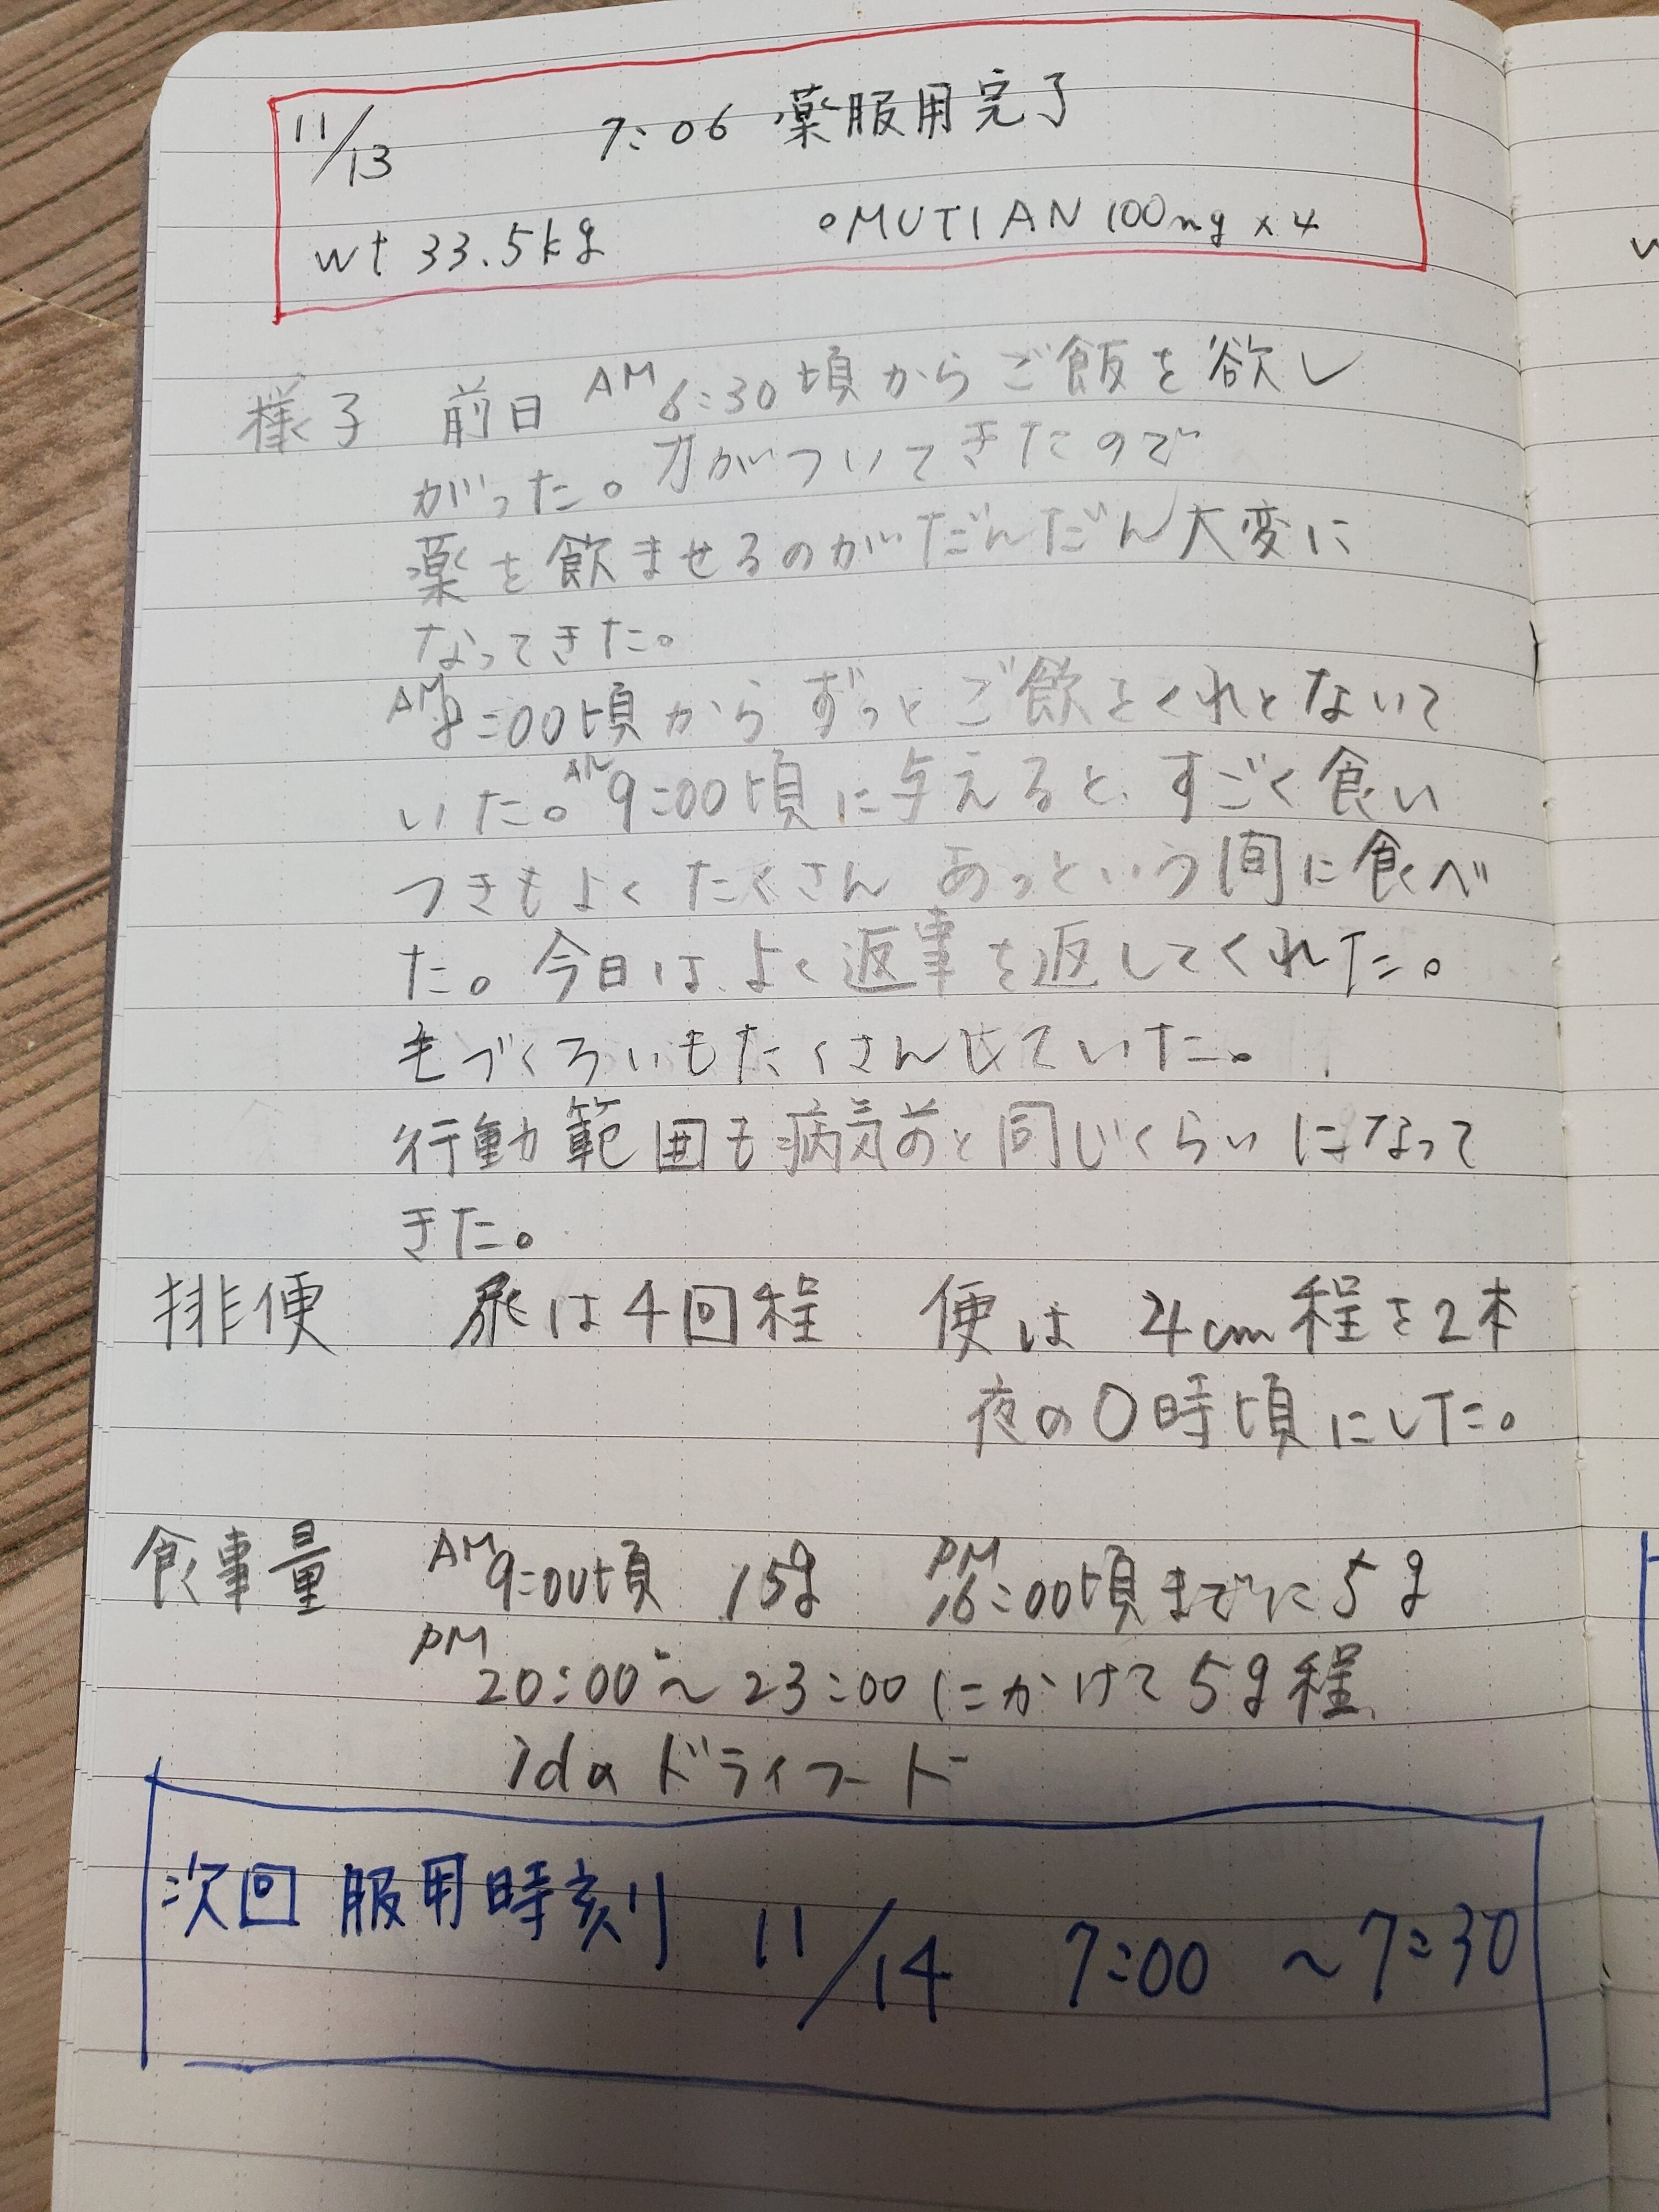 11/13 7:06 薬服用完了
wt 33.5kg ○MUTIAN 100mg×4
様子 前日 AM6:30頃からご飯を欲し
がった。力がついてきたので
薬を飲ませるのがだんだん大変に
なってきた。
AM8:00頃からずっとご飲をくれとないて
いた。AM9:00頃に与えると、すごく食い
つきもよくたくさんあっという間に食べ
た。今日はよく返事を返してくれた。
毛づくろいもたくさんせていた。
行動範囲も病気前と同じくらいになって
きた。
排便 尿は4回程 便は 4cm程を2本
夜の0時頃にした。
食事量 AM9:00頃 15g PM16:00頃までに5g
PM20:00~23:00にかけて5g程
idaドライフード
次回 服用時刻 11/14 7:00 ~7:30